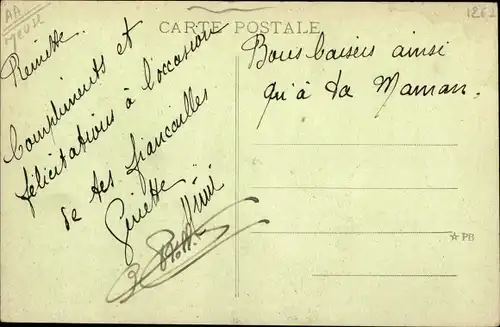 AA
MEUSE
CARTE POSTALE
Reinette.
Compliments et
félicitations à l'occasion
de tes fiancailles
Ginette
Bons baisers ainsi
qu'à ta Maman.
☆ PB